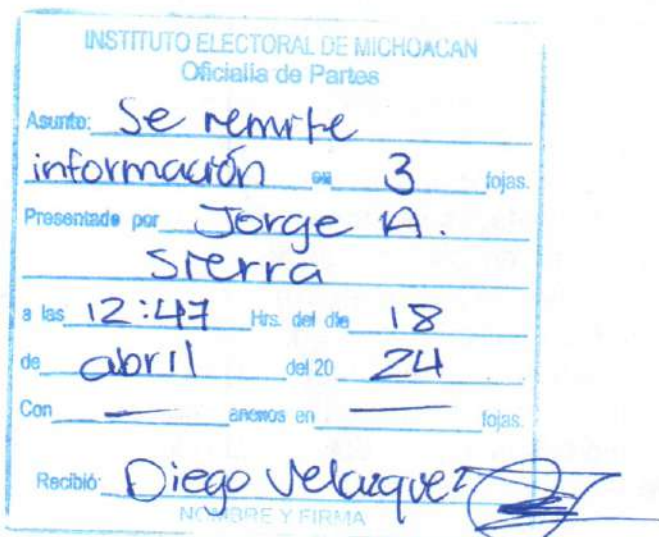 INSTITUTO ELECTORAL DE MICHOACAN
Oficialia de Partes
Asunto: Se remite
información en 3 fojas.
Presentado por Jorge A.
Sierra
a las 12:47 Hrs. del día 18
de abril del 20 24
Con — anexos en — fojas.
Recibió: Diego Velazquez
NOMBRE Y FIRMA